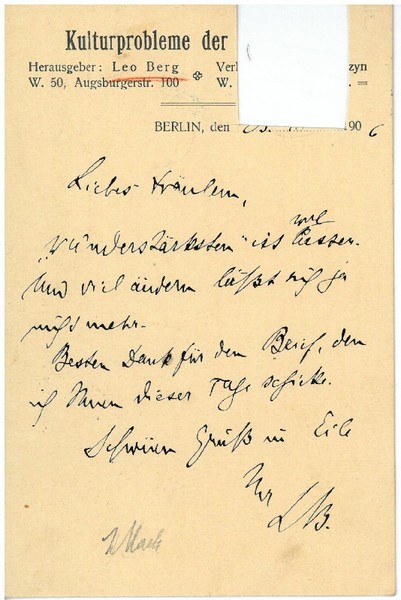 Kulturprobleme der
Herausgeber: Leo Berg Verl zyn
W. 50, Augsburgerstr. 100 W.
BERLIN, den 190 6
Liebes Fräulein,
ist wohl besser.
Und viel ändern läßt sich ja
nicht mehr.
Besten Dank für den Brief, den
ich Ihnen dieser Tage schicke.
Schönen Gruß in Eile
Ihr
LB.